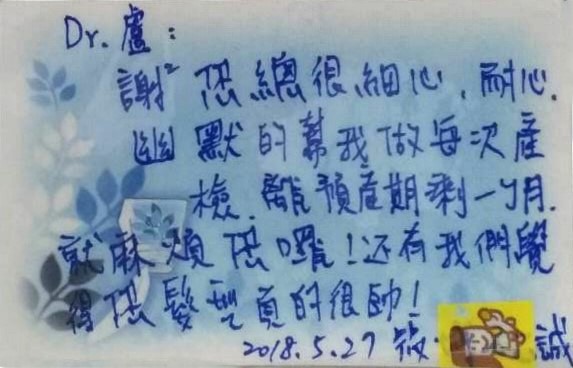 Dr. 盧：
謝² 您總很細心、耐心、
幽默的幫我做每次產
檢、離預產期剩一ㄅ月、
就麻煩您囉！还有我們覺
得您髮型真的很帥！
2018.5.27 筱 誠